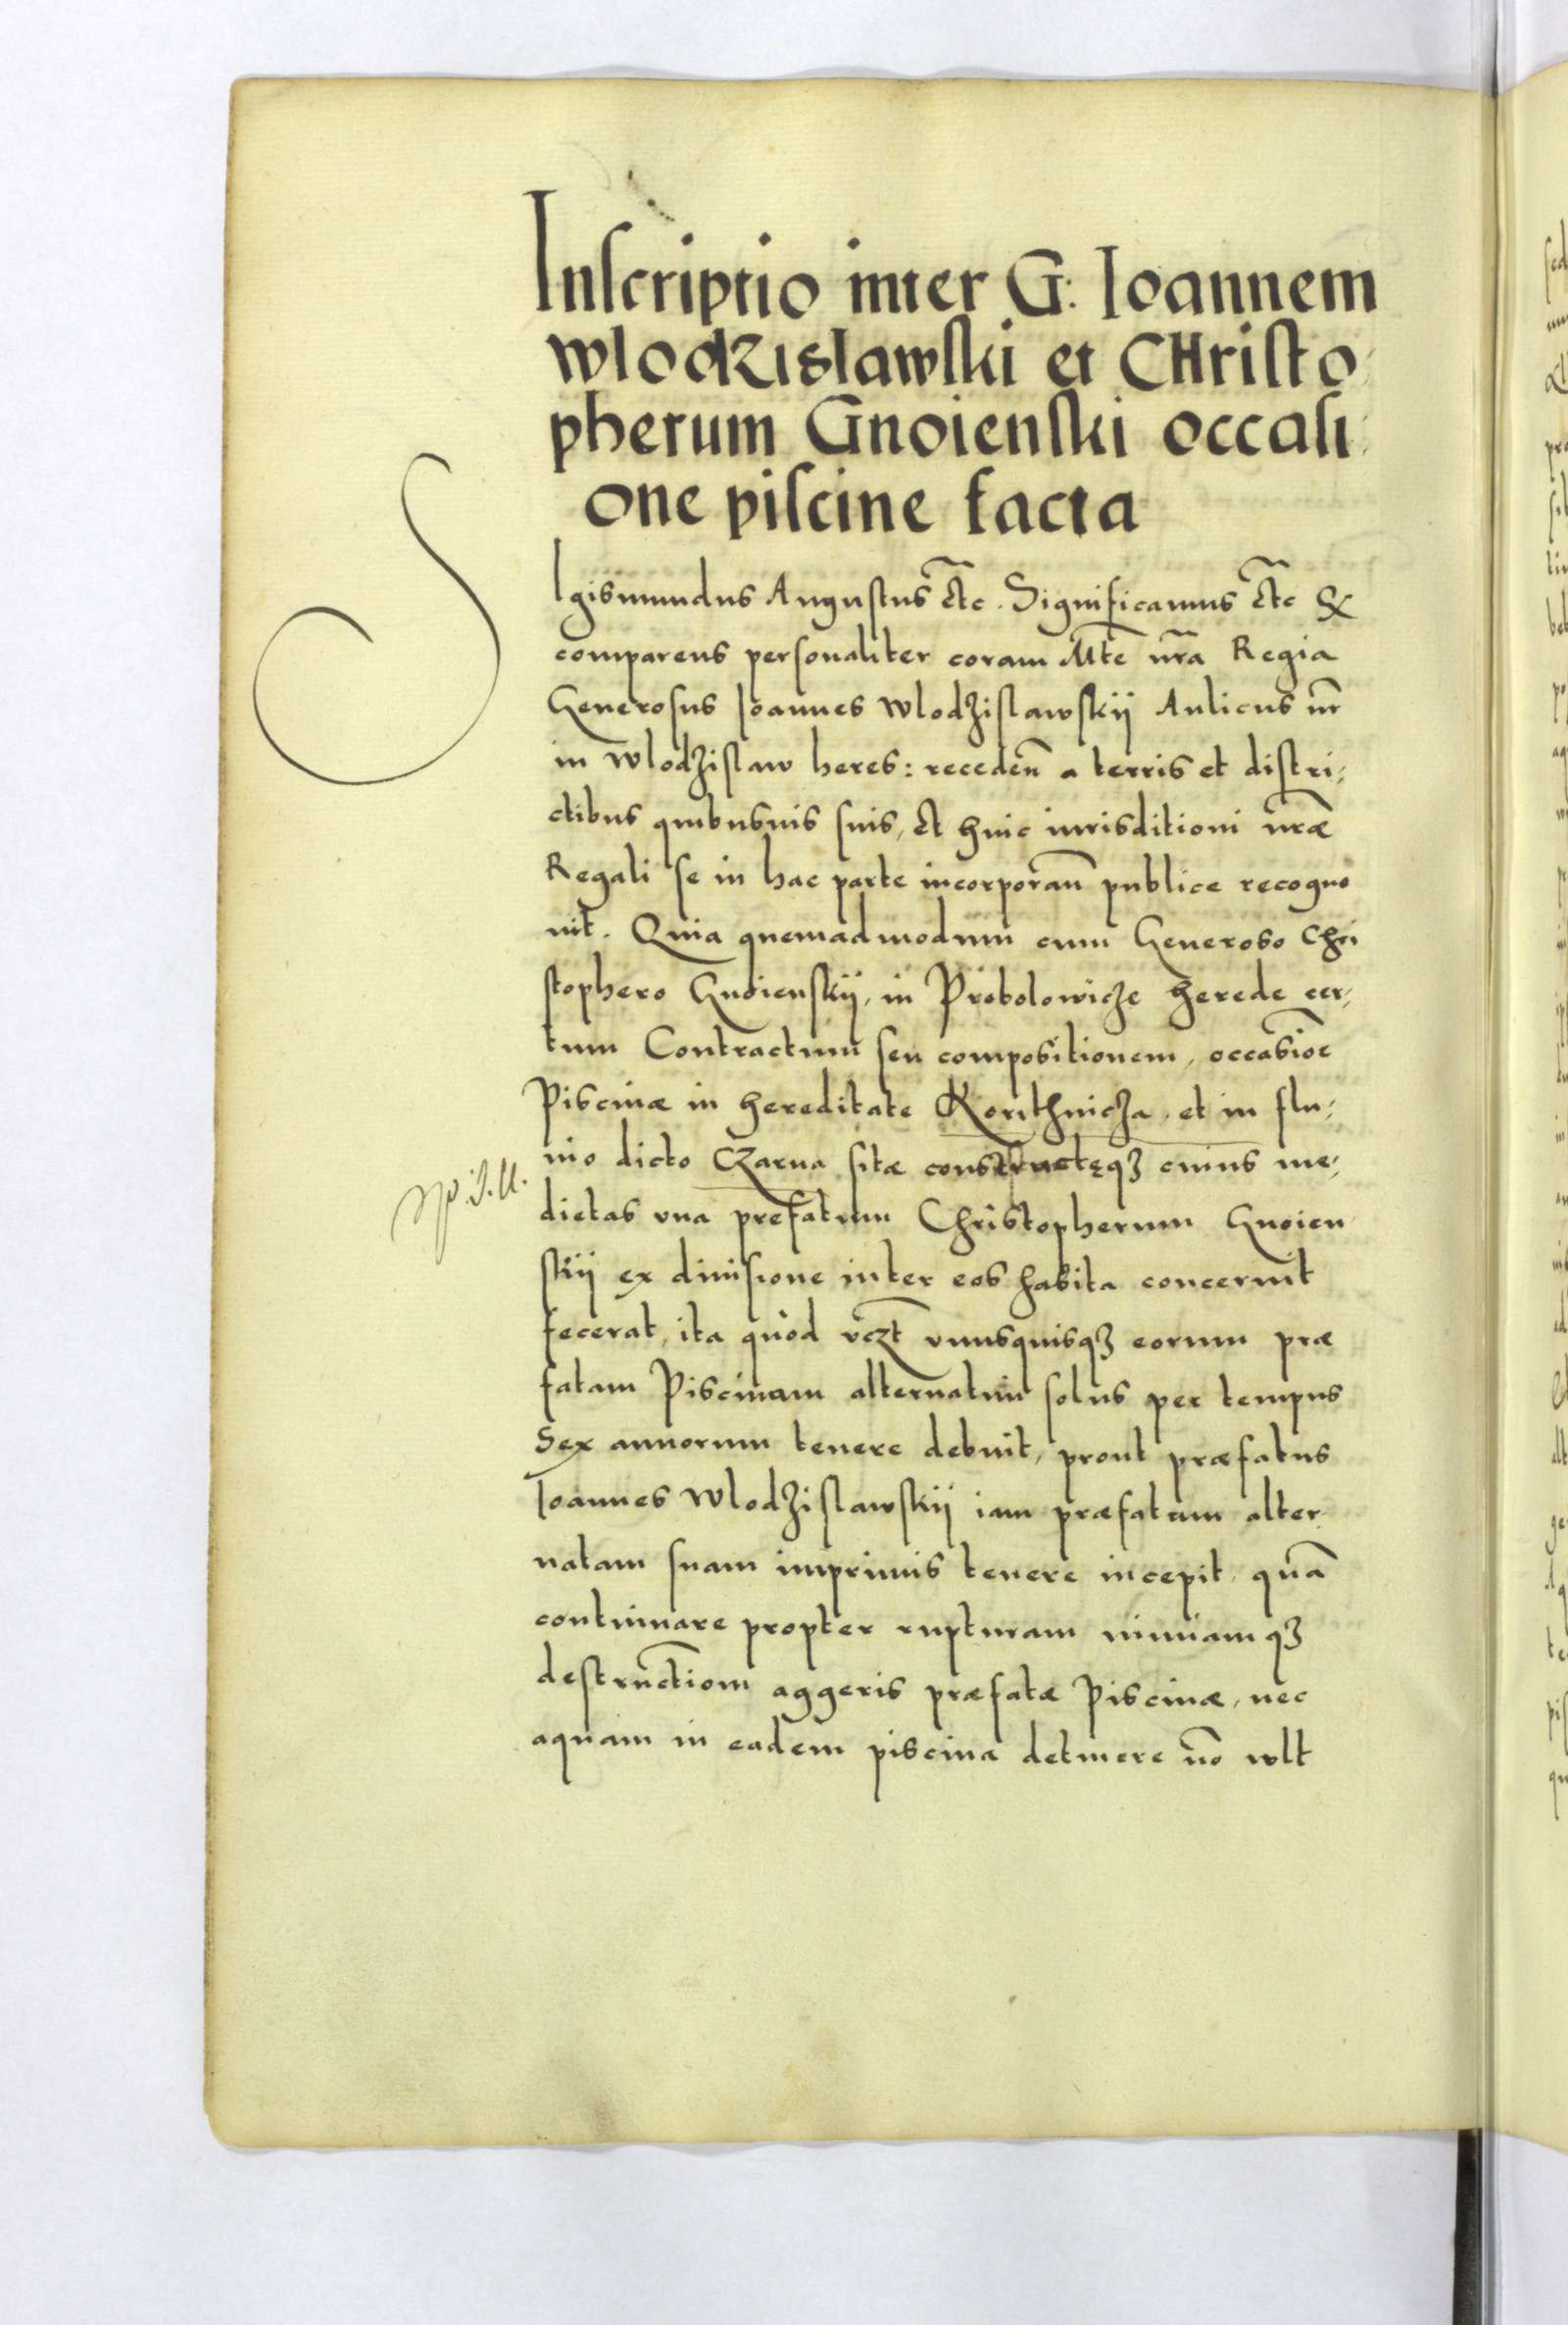 Inscriptio inter G: Ioannem
wlodzislawski et CHristo
pherum Gnoienski occasi
one piscine facta
SIgismundus Augustus etc. Significamus etc Q
comparens personaliter coram Mte nra Regia
Generosus Ioannes Wlodzislawskij Aulicus nr
in Wlodzislaw heres: receden a terris et distri,
ctibus quibusuis suis, et huic iurisditioni nræ
Regali se in hac parte incorporan publice recogno
uit. Quia quemadmodum cum Generoso Chri
stophero Gnoienskij, in Probolowicze herede cer,
tum Contractum seu compositionem, occasioe
Piscinæ in hereditate Korithnicza, et in flu,
uio dicto Czarna sitæ constructęqȝ cuius me,
Np. J. U.
dietas vna prefatum Christopherum Gnoien
skij ex diuisione inter eos habita concernit
fecerat, ita quod vczt vnusquisqȝ eorum præ
fatam Piscinam alternatim solus per tempus
Sex annorum tenere debuit, prout præfatus
Ioannes Wlodzislawskij iam præfatam alter
natam suam imprimis tenere incepit, qua
continuare propter rupturam nimiamqȝ
destructiom aggeris præfatæ Piscinæ, nec
aquam in eadem piscina detinere no wlt